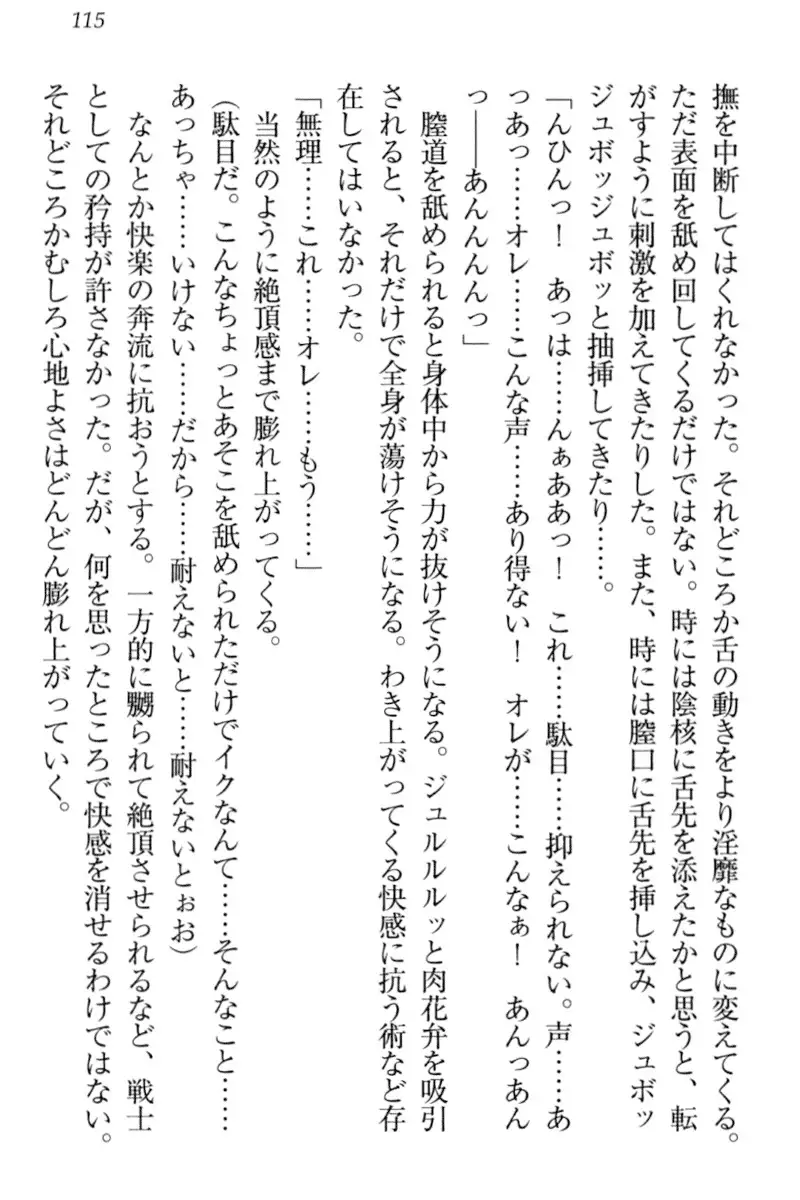 115
撫を中断してはくれなかった。それどころか舌の動きをより淫靡なものに変えてくる。
ただ表面を舐め回してくるだけではない。時には陰核に舌先を添えたかと思うと、転
がすように刺激を加えてきたりした。また、時には膣口に舌先を挿し込み、ジュボッ
ジュボッジュボッと抽挿してきたり……。
「んひんっ！　あっは……んぁああっ！　これ……駄目……抑えられない。声……あ
っあっ……オレ……こんな声……あり得ない！　オレが……こんなぁ！　あんっあん
っ――あんんんんっ」
膣道を舐められると身体中から力が抜けそうになる。ジュルルルッと肉花弁を吸引
されると、それだけで全身が蕩けそうになる。わき上がってくる快感に抗う術など存
在してはいなかった。
「無理……これ……オレ……もう……」
当然のように絶頂感まで膨れ上がってくる。
（駄目だ。こんなちょっとあそこを舐められただけでイクなんて……そんなこと……
あっちゃ……いけない……だから……耐えないと……耐えないとぉお）
なんとか快楽の奔流に抗おうとする。一方的に嬲られて絶頂させられるなど、戦士
としての矜持が許さなかった。だが、何を思ったところで快感を消せるわけではない。
それどころかむしろ心地よさはどんどん膨れ上がっていく。